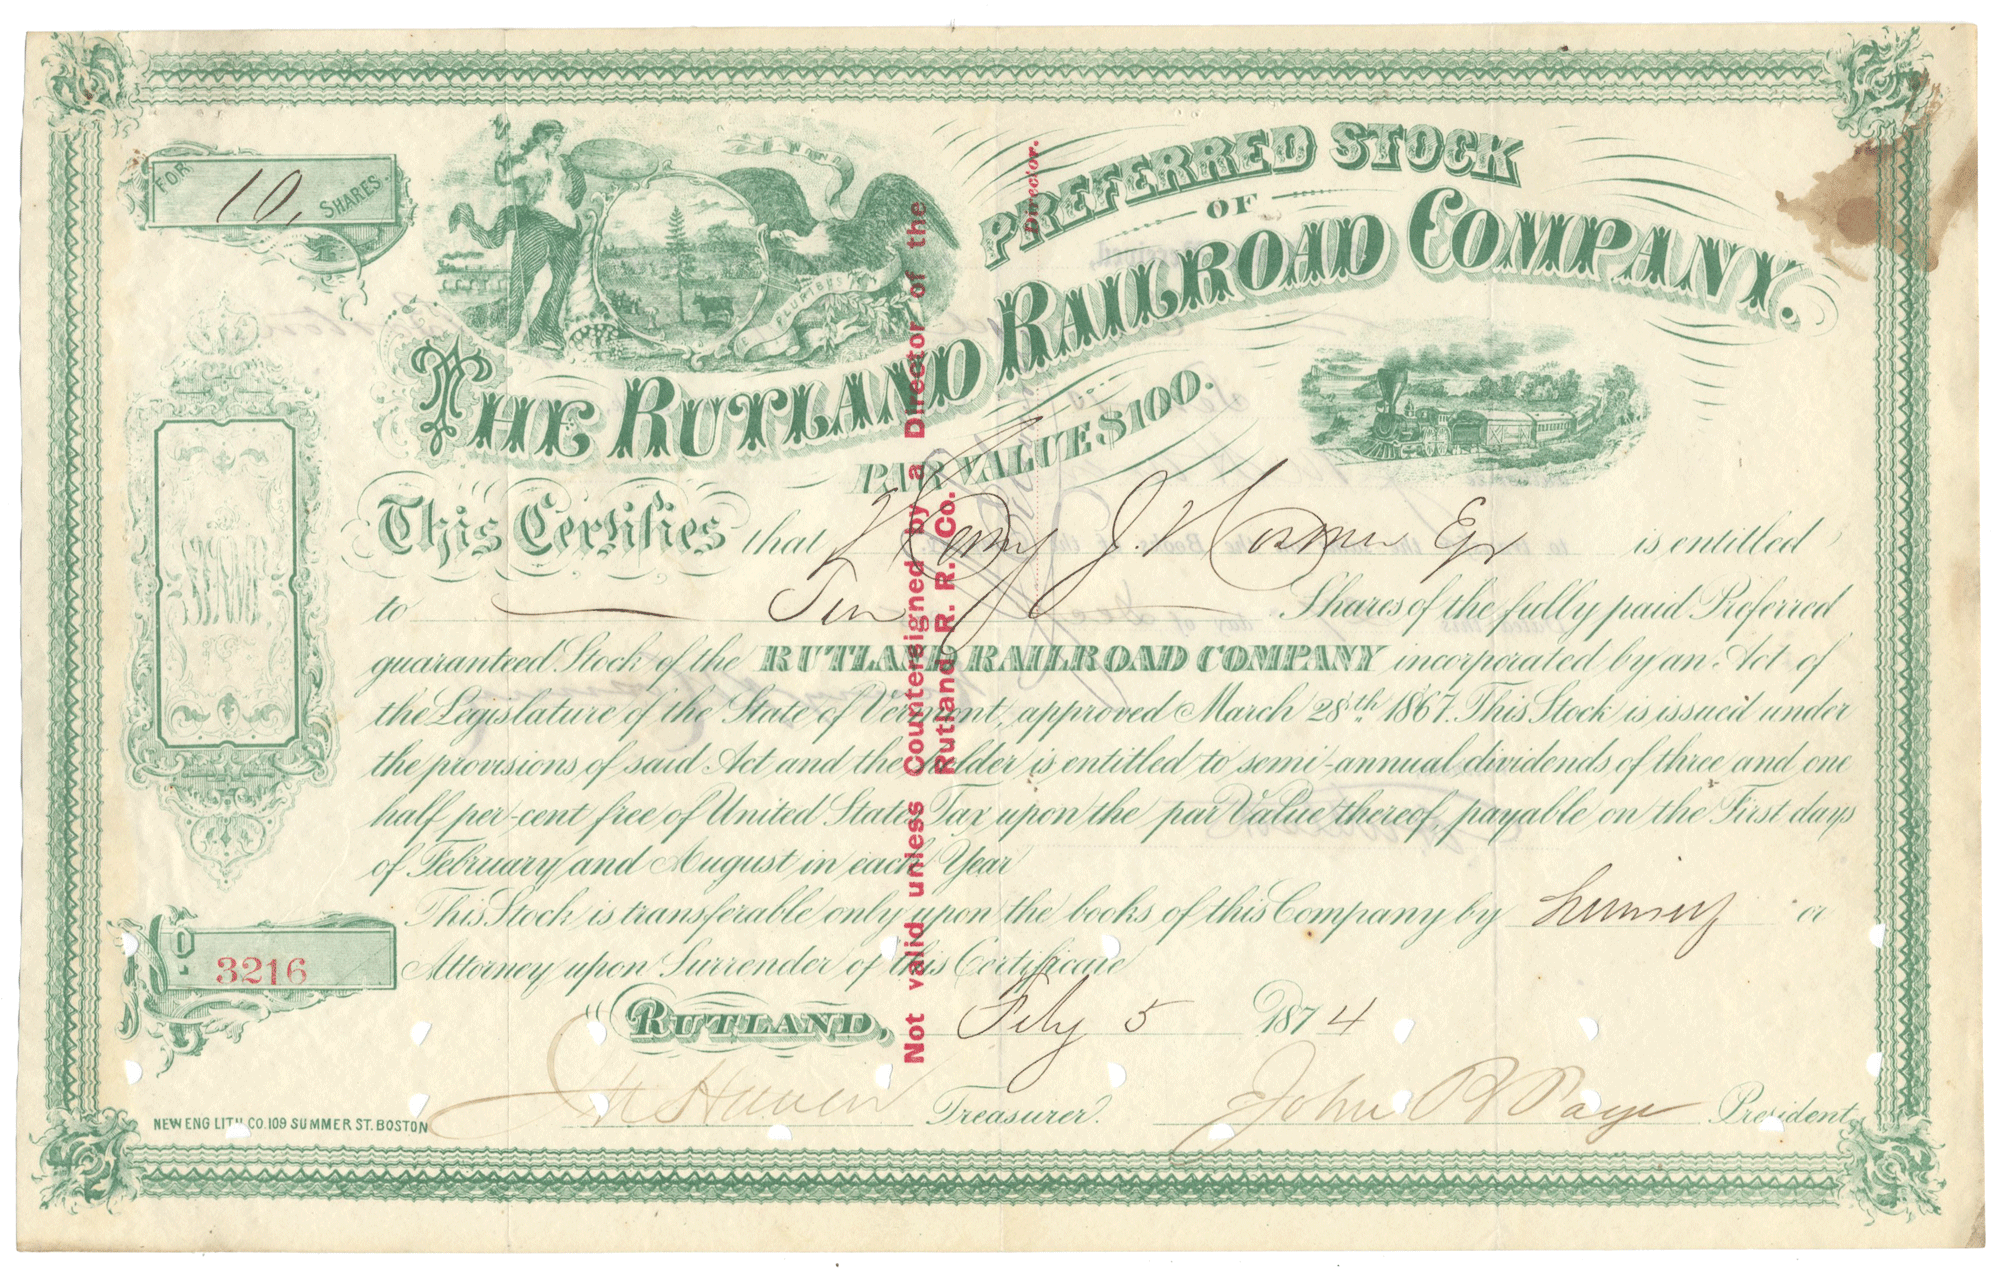 FOR
10, SHARES.
E PLURIBUS
PREFERRED STOCK
OF
THE RUTLAND RAILROAD COMPANY.
PAR VALUE $100.
This Certifies that Henry J. is entitled
to Ten Shares of the fully paid Preferred
guaranteed Stock of the RUTLAND RAILROAD COMPANY incorporated by an Act of
the Legislature of the State of Vermont, approved March 28th 1867. This Stock is issued under
the provisions of said Act and the holder is entitled to semi-annual dividends of three and one
half per-cent free of United States Tax upon the par Value thereof payable on the First days
of February and August in each Year
This Stock is transferable only upon the books of this Company by or
Attorney upon Surrender of this Certificate
No. 3216
RUTLAND, Feby 5 1874
Treasurer. John B Page President
NEW ENG LITH CO. 109 SUMMER ST. BOSTON
Not valid unless Countersigned by a Director of the
Rutland R. R. Co.
Director.